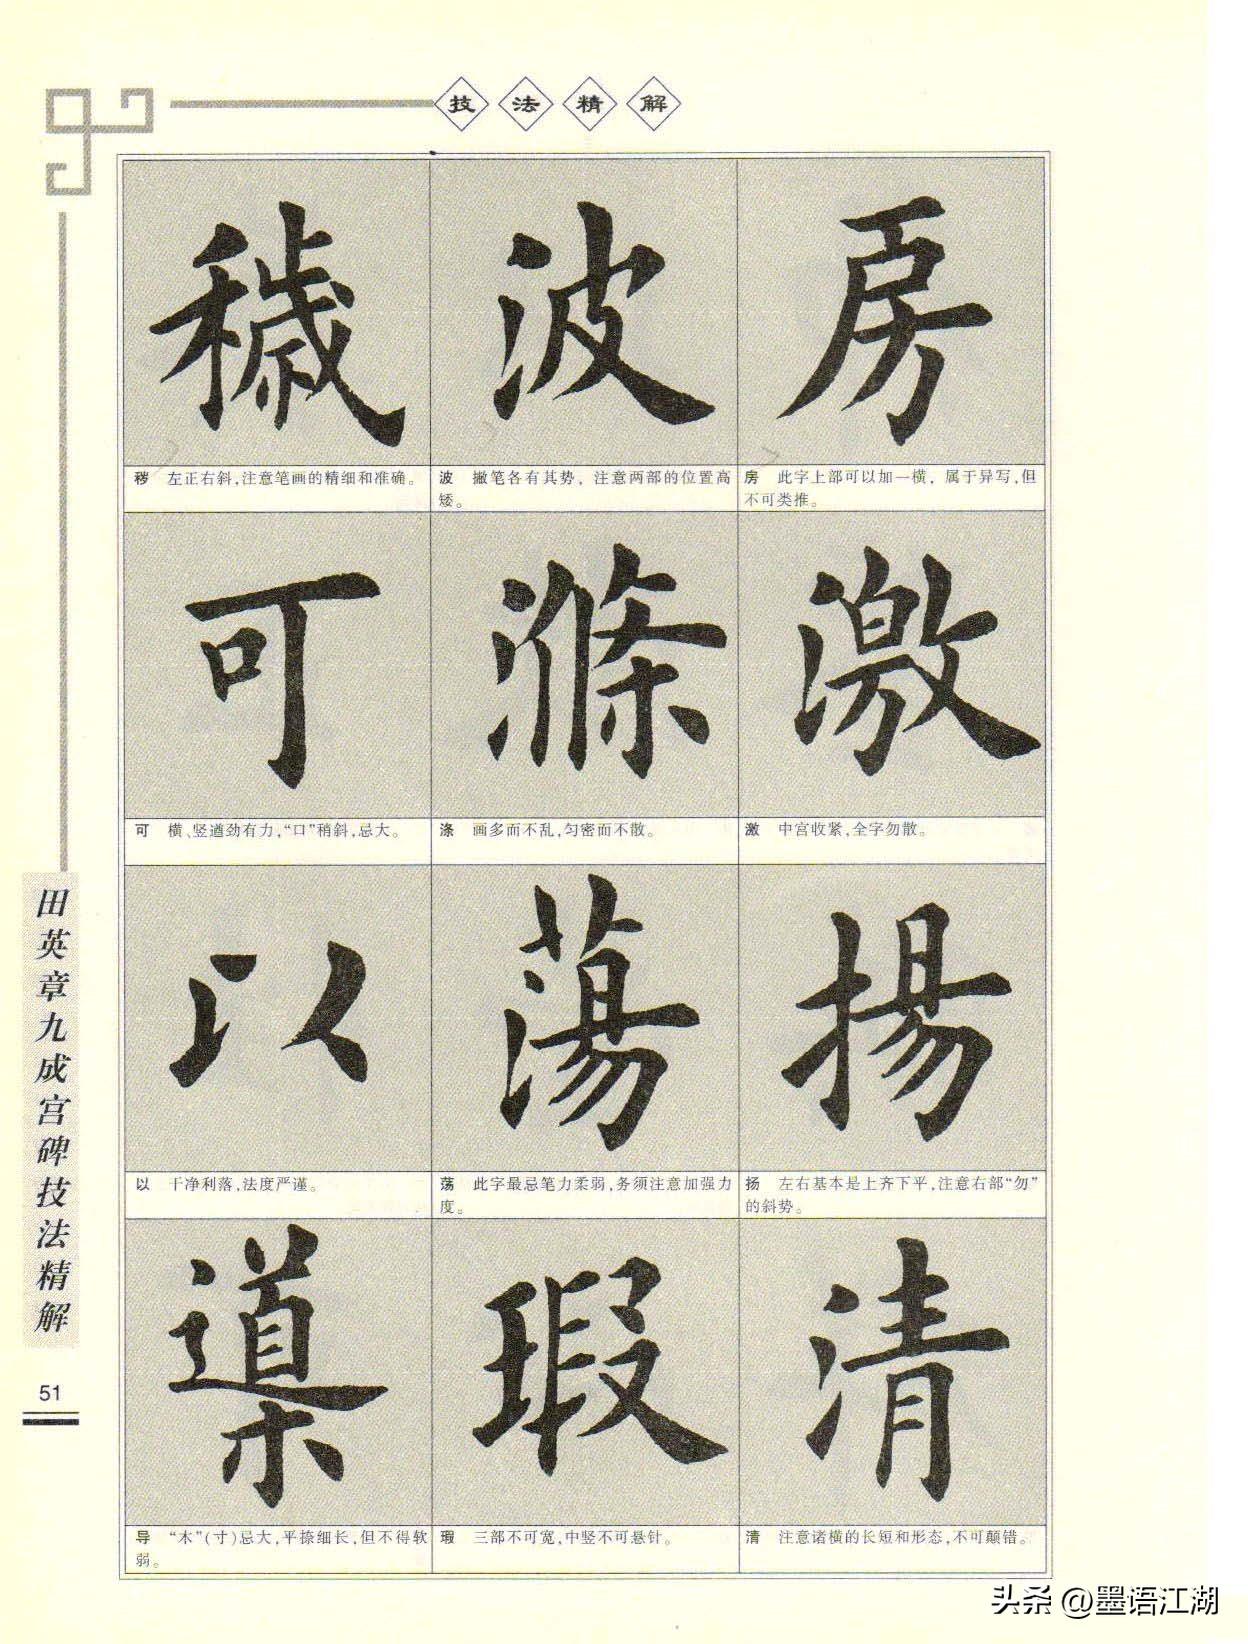 技法精解
穢
波
房
秽 左正右斜,注意笔画的精细和准确。
波 撇笔各有其势，注意两部的位置高
矮。
房 此字上部可以加一横，属于异写,但
不可类推。
可
滌
激
可 横、竖遒劲有力,“口”稍斜,忌大。
涤 画多而不乱,匀密而不散。
激 中宫收紧,全字勿散。
以
蕩
揚
以 干净利落,法度严谨。
荡 此字最忌笔力柔弱,务须注意加强力
度。
扬 左右基本是上齐下平,注意右部“勿”
的斜势。
導
瑕
清
导 “木”(寸)忌大,平捺细长,但不得软
弱。
瑕 三部不可宽,中竖不可悬针。
清 注意诸横的长短和形态,不可颠错。
田英章九成宫碑技法精解
51
头条 @墨语江湖